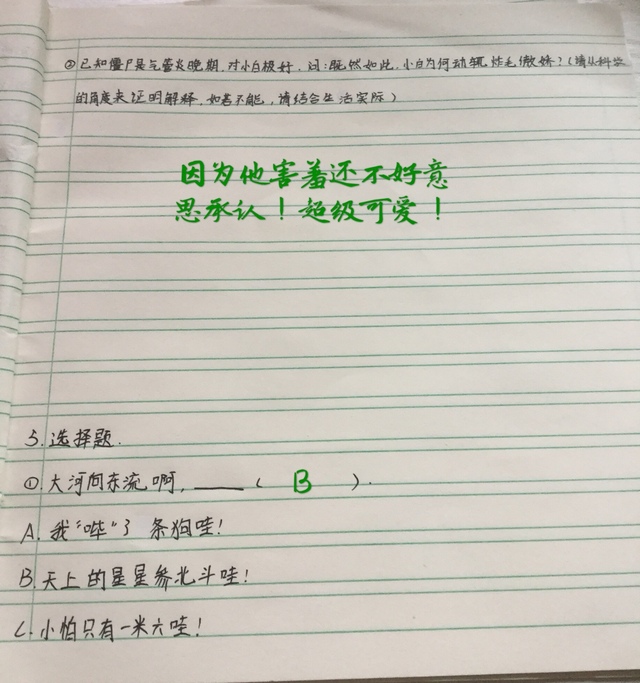 ②已知僵尸是气管炎晚期,对小白极好,问:既然如此,小白为何动辄炸毛傲娇?(请从科学
的角度来证明解释,如若不能,请结合生活实际)
因为他害羞还不好意
思承认!超级可爱!
5.选择题.
①.大河向东流啊,____( B ).
A.我"哔"了条狗哇!
B.天上的星星参北斗哇!
C.小怕只有一米六哇!